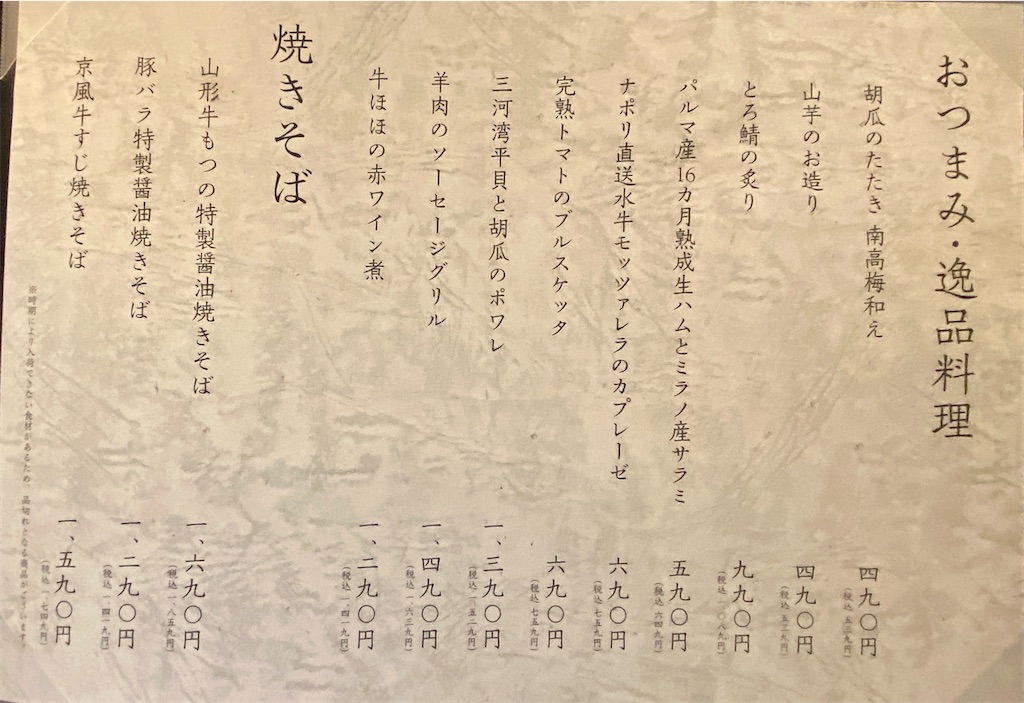 おつまみ・逸品料理
胡瓜のたたき 南高梅和え
四九〇円
(税込 五三九円)
山芋のお造り
四九〇円
(税込 五三九円)
とろ鯖の炙り
九九〇円
(税込 一、〇八九円)
パルマ産16カ月熟成生ハムとミラノ産サラミ
五九〇円
(税込 六四九円)
ナポリ直送水牛モッツァレラのカプレーゼ
六九〇円
(税込 七五九円)
完熟トマトのブルスケッタ
六九〇円
(税込 七五九円)
三河湾平貝と胡瓜のポワレ
一、三九〇円
(税込 一、五二九円)
羊肉のソーセージグリル
一、四九〇円
(税込 一、六三九円)
牛ほほの赤ワイン煮
一、二九〇円
(税込 一、四一九円)
焼きそば
山形牛もつの特製醤油焼きそば
一、六九〇円
(税込 一、八五九円)
豚バラ特製醤油焼きそば
一、二九〇円
(税込 一、四一九円)
京風牛すじ焼きそば
一、五九〇円
(税込 一、七四九円)
※時期により入荷できない食材があるため、品切れとなる商品がございます。